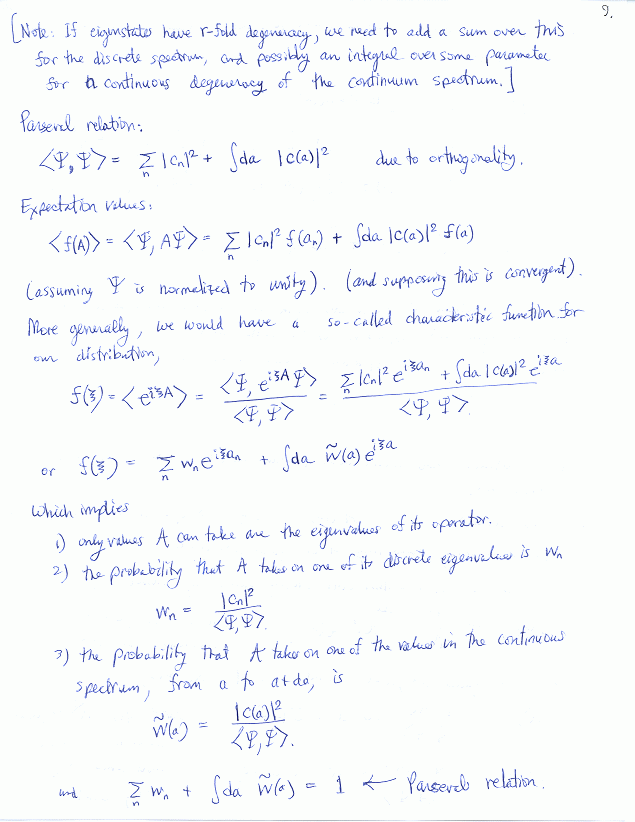 9.
[Note: If eigenstates have r-fold degeneracy, we need to add a sum over this
for the discrete spectrum, and possibly an integral over some parameter
for a continuous degeneracy of the continuum spectrum.]
Parseval relation:
<Ψ,Ψ> = Σ_n |c_n|² + ∫da |c(a)|² due to orthogonality.
Expectation values:
<f(A)> = <Ψ, AΨ> = Σ_n |c_n|² f(a_n) + ∫da |c(a)|² f(a)
(assuming Ψ is normalized to unity). (and supposing this is convergent).
More generally, we would have a so-called characteristic function for
our distribution,
f(ξ) = <e^{iξA}> = <Ψ, e^{iξA}Ψ> / <Ψ,Ψ> = (Σ_n |c_n|² e^{iξa_n} + ∫da |c(a)|² e^{iξa}) / <Ψ,Ψ>
or f(ξ) = Σ_n w_n e^{iξa_n} + ∫da w̃(a) e^{iξa}
which implies
1) only values A can take are the eigenvalues of its operator.
2) the probability that A takes on one of its discrete eigenvalues is w_n
w_n = |c_n|² / <Ψ,Ψ>.
3) the probability that A takes on one of the values in the continuous
spectrum, from a to a+da, is
w̃(a) = |c(a)|² / <Ψ,Ψ>.
and Σ_n w_n + ∫da w̃(a) = 1 ← Parseval relation.